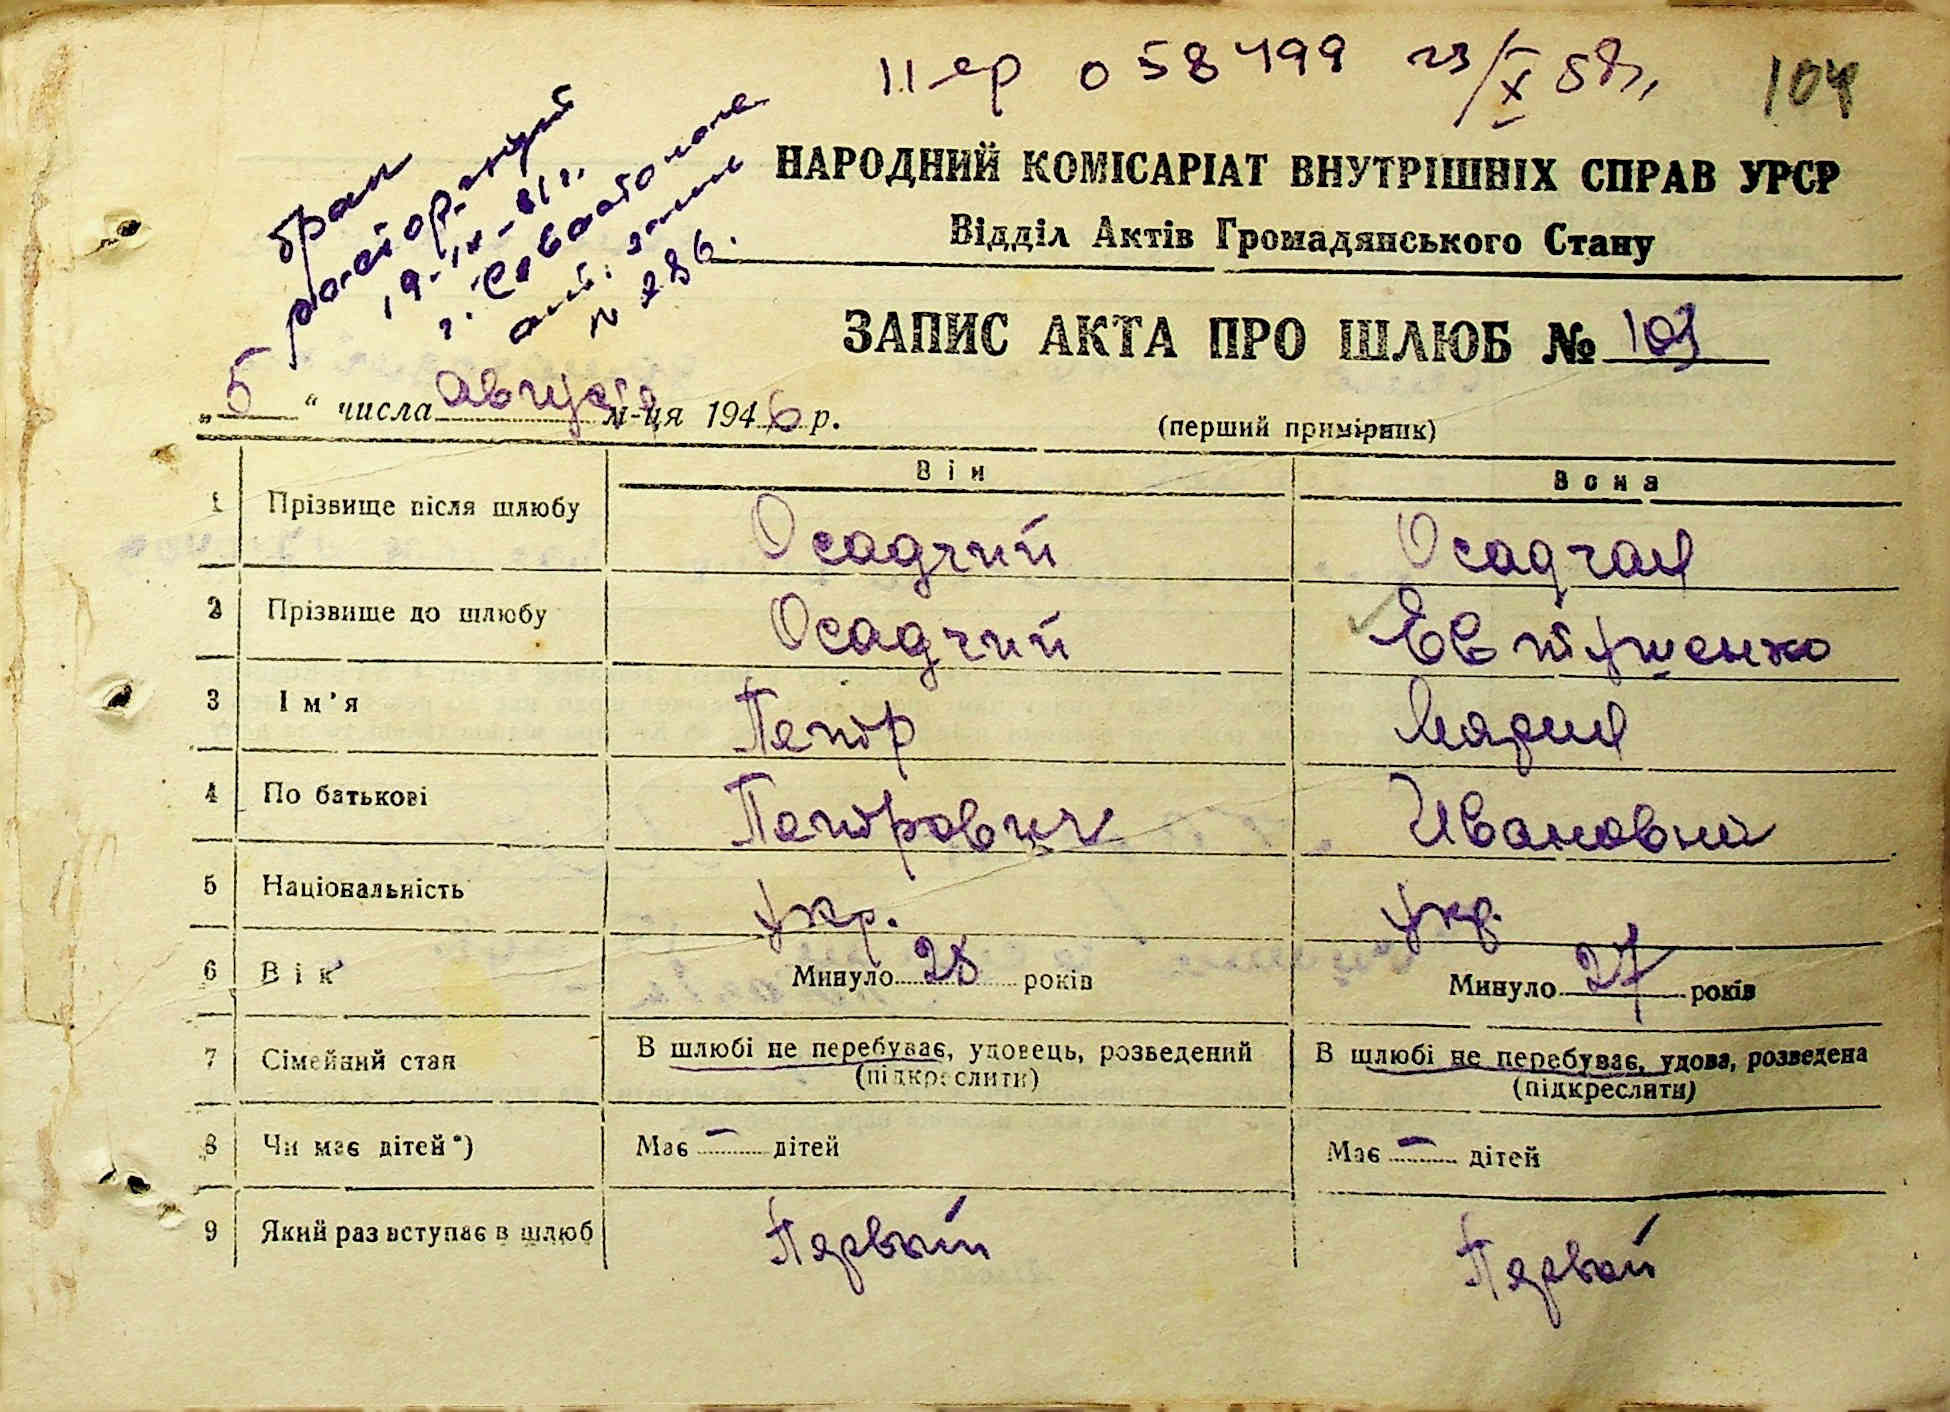 II ер 058499 23/X 58 г.
104
брак
расторгнут
19-IX-61 г.
г. Севастополе
акт. запись
N 286.
НАРОДНИЙ КОМІСАРІАТ ВНУТРІШНІХ СПРАВ УРСР
Відділ Актів Громадянського Стану
ЗАПИС АКТА ПРО ШЛЮБ № 103
„5“ числа августа м-ця 1946 р.
(перший примірник)
Він Вона
1 Прізвище після шлюбу Осадчий Осадчая
2 Прізвище до шлюбу Осадчий Евтушенко
3 Ім'я Петр Мария
4 По батькові Петрович Ивановна
5 Національність укр. укр.
6 Вік Минуло 28 років Минуло 27 років
7 Сімейний стан В шлюбі не перебуває, удовець, розведений В шлюбі не перебуває, удова, розведена
(підкреслити) (підкреслити)
8 Чи має дітей*) Має — дітей Має — дітей
9 Який раз вступає в шлюб Первый Первый